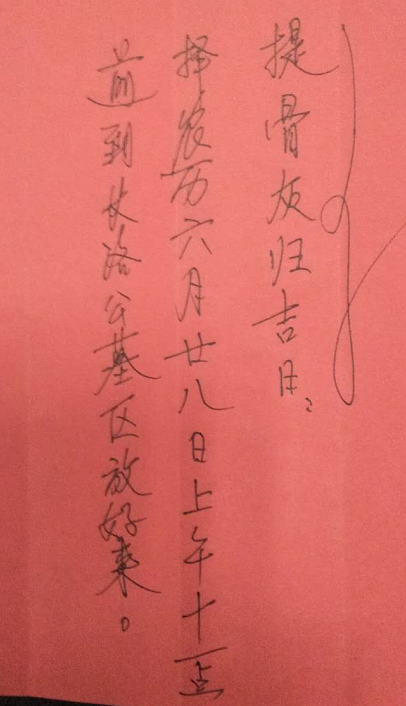 提骨灰归吉日:
择农历六月廿八日上午十一点
前到长洛公墓区放好来。